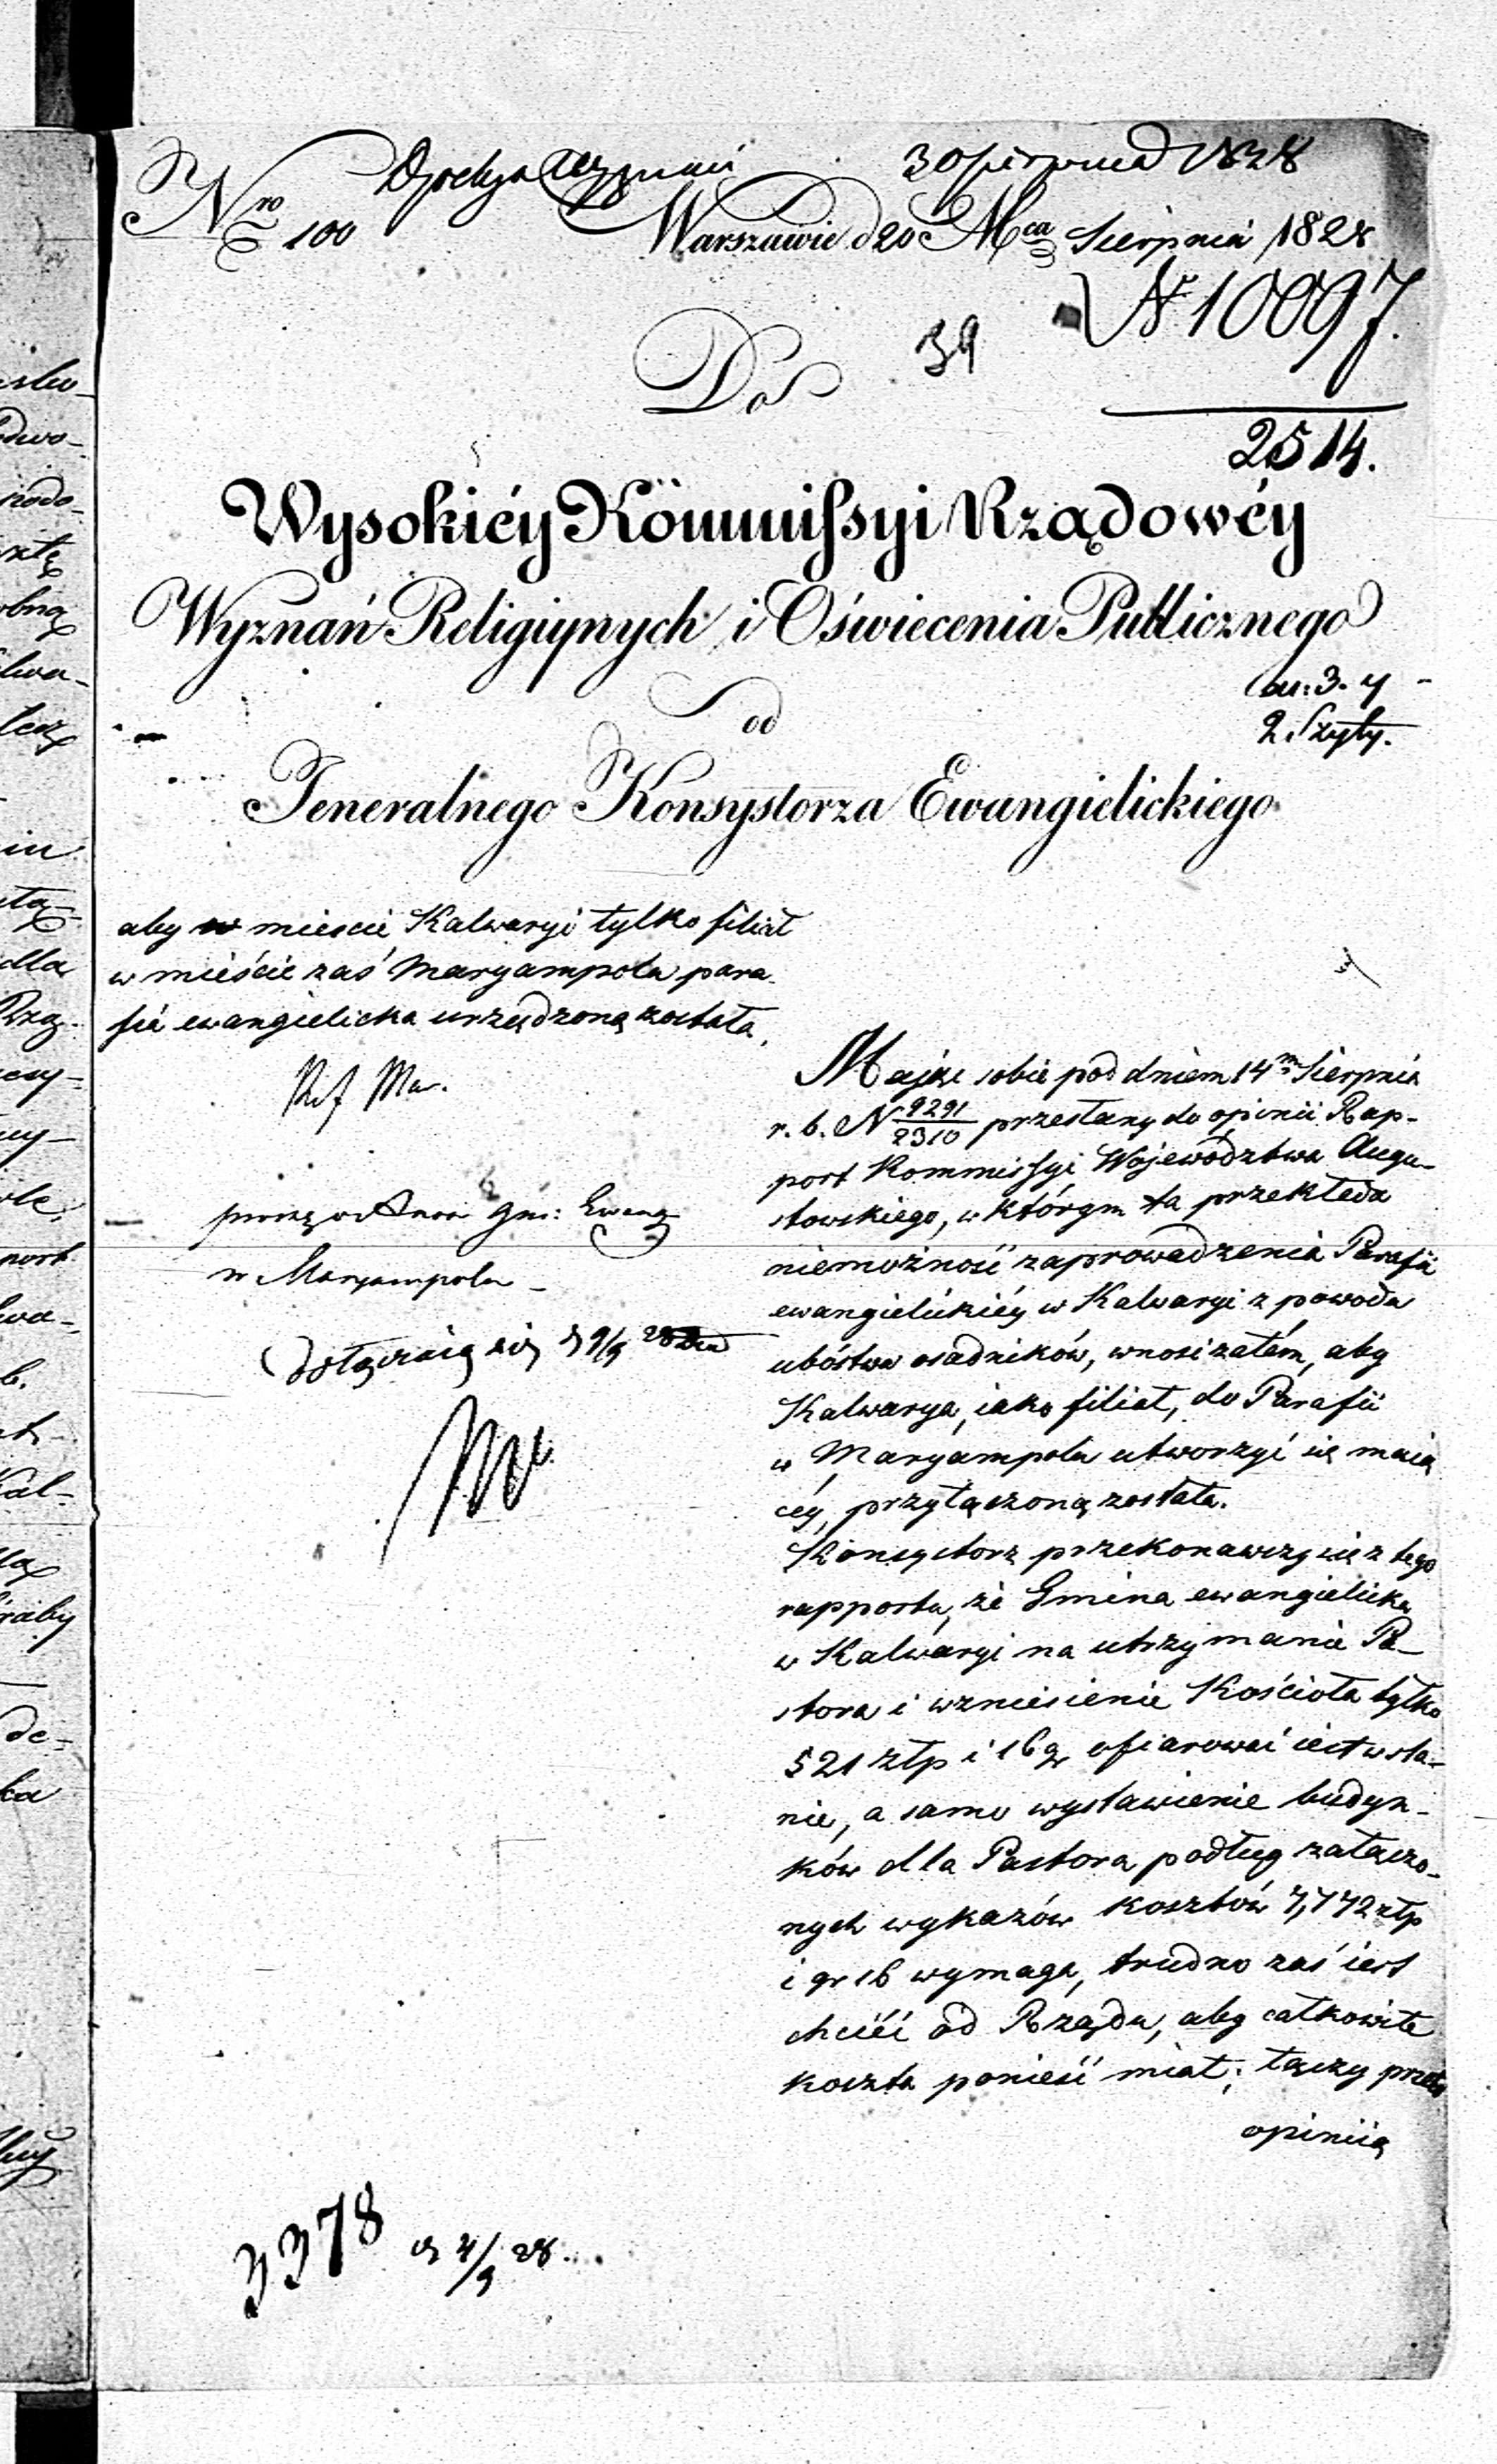 30 sierpnia 1828
Nro 100
Warszawie d 20 Mca Sierpnia 1828
N 10097.
39
Do
2514.
Wysokiéy Kommissyi Rządowéy
Wyznań Religiynych i Oświecenia Publicznego
2 Szyty.
od
Jeneralnego Konsystorza Ewangielickiego
aby w miescie Kalwaryi tylko filiał
w mieście zaś Maryampolu para-
fia ewangielicka urządzoną została.
Ref Mu.
Maiąc sobie pod dniem 14m Sierpnia
r. b. N 9291/2310 przesłany do opinii Rap-
port Kommissyi Województwa Augu-
stowskiego, w którym ta przekłada
niemożność zaprowadzenia Parafii
ewangielickiéy w Kalwaryi z powodu
ubóstwa osadników, wnosi zatém, aby
Kalwarya, iako filiał, do Parafii
w Maryampolu utworzyć się maią
céy, przyłączoną została.
Konsystorz przekonawszy się z tego
rapportu, że Gmina ewangielicka
w Kalwaryi na utrzymanie Pa-
stora i wzniesienie Kościoła tylko
521 złp i 16 gr ofiarować iest w sta-
nie, a samo wystawienie budyn-
ków dla Pastora podług załączo-
nych wykazów kosztów 7,772 złp
i gr 16 wymaga, trudno zaś iest
chcieć od Rządu, aby całkowite
koszta ponieść miał; łączy przeto
opiniią
Gm: Ewang
w Maryampolu
dołącza się d 9/9 28
3378 d 4/9 28.